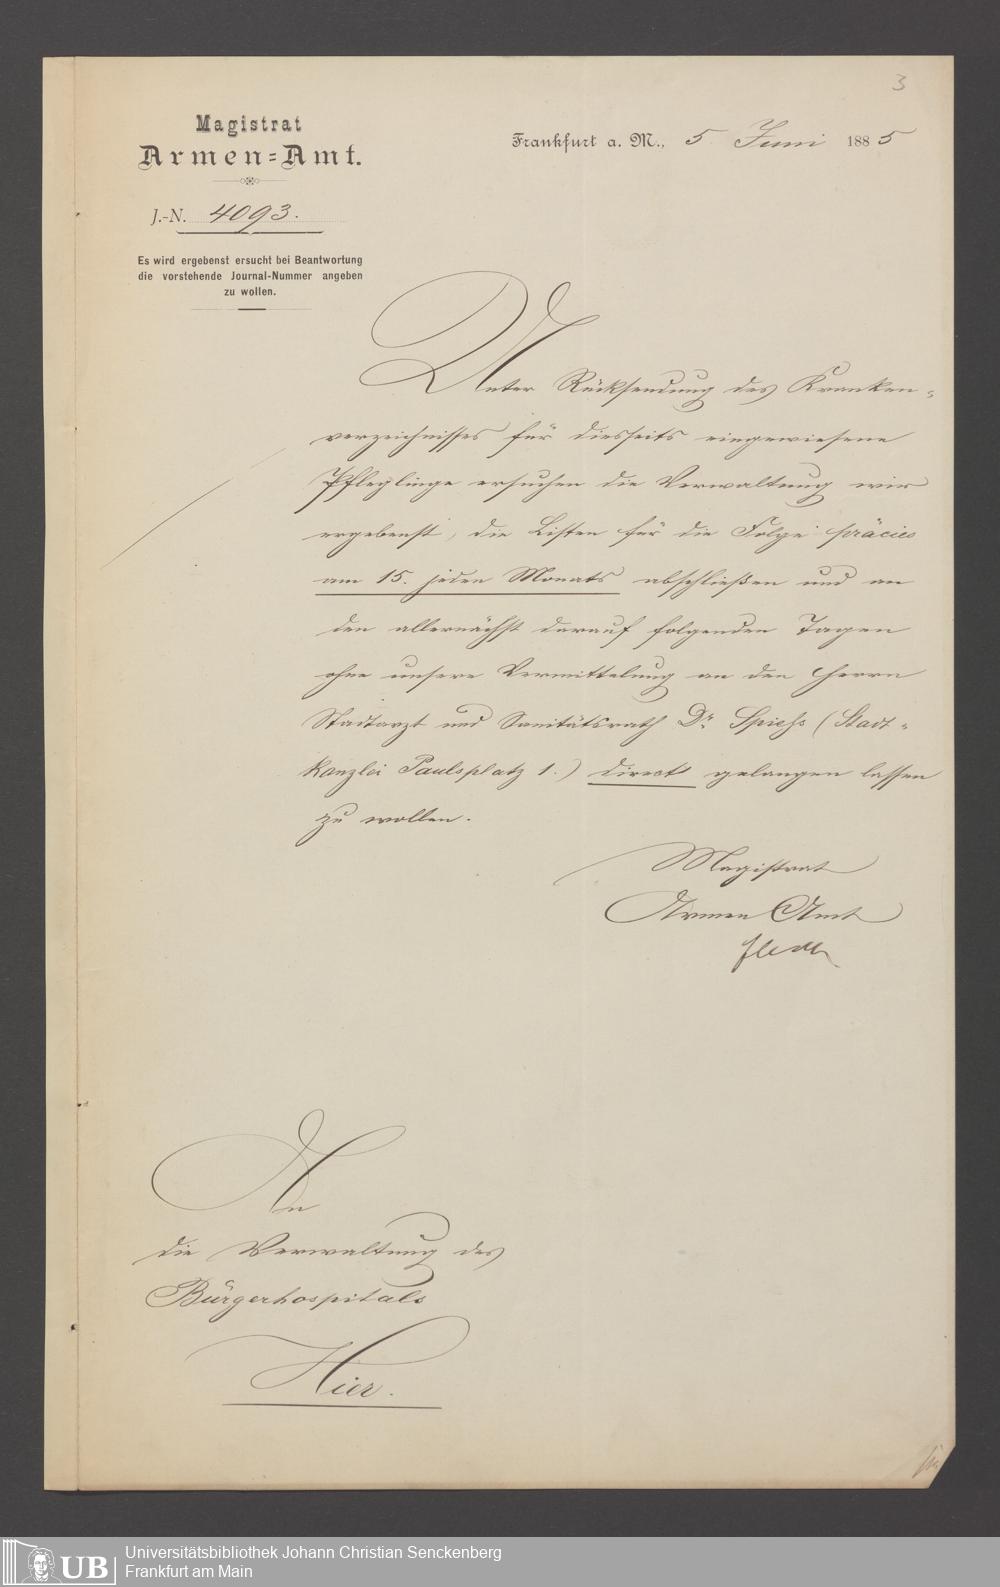 3
Magistrat
Armen=Amt.
Frankfurt a. M., 5 Juni 1885
J.-N. 4093.
Es wird ergebenst ersucht bei Beantwortung
die vorstehende Journal-Nummer angeben
zu wollen.
Unter Rücksendung des Kranken-
verzeichnisses für diesseits eingewiesene
Pfleglinge ersuchen die Verwaltung wir
ergebenst, die Listen für die Folge präcies
am 15. jeden Monats abschließen und an
den allernächst darauf folgenden Tagen
ohne unsere Vermittelung an den Herrn
Stadtarzt und Sanitätsrath Dr. Spiehs (Stadt-
kanzlei Paulsplatz 1.) direct gelangen lassen
zu wollen.
Magistrat
Armen Amt
An
die Verwaltung des
Bürgerhospitals
Hier.
UB
Universitätsbibliothek Johann Christian Senckenberg
Frankfurt am Main